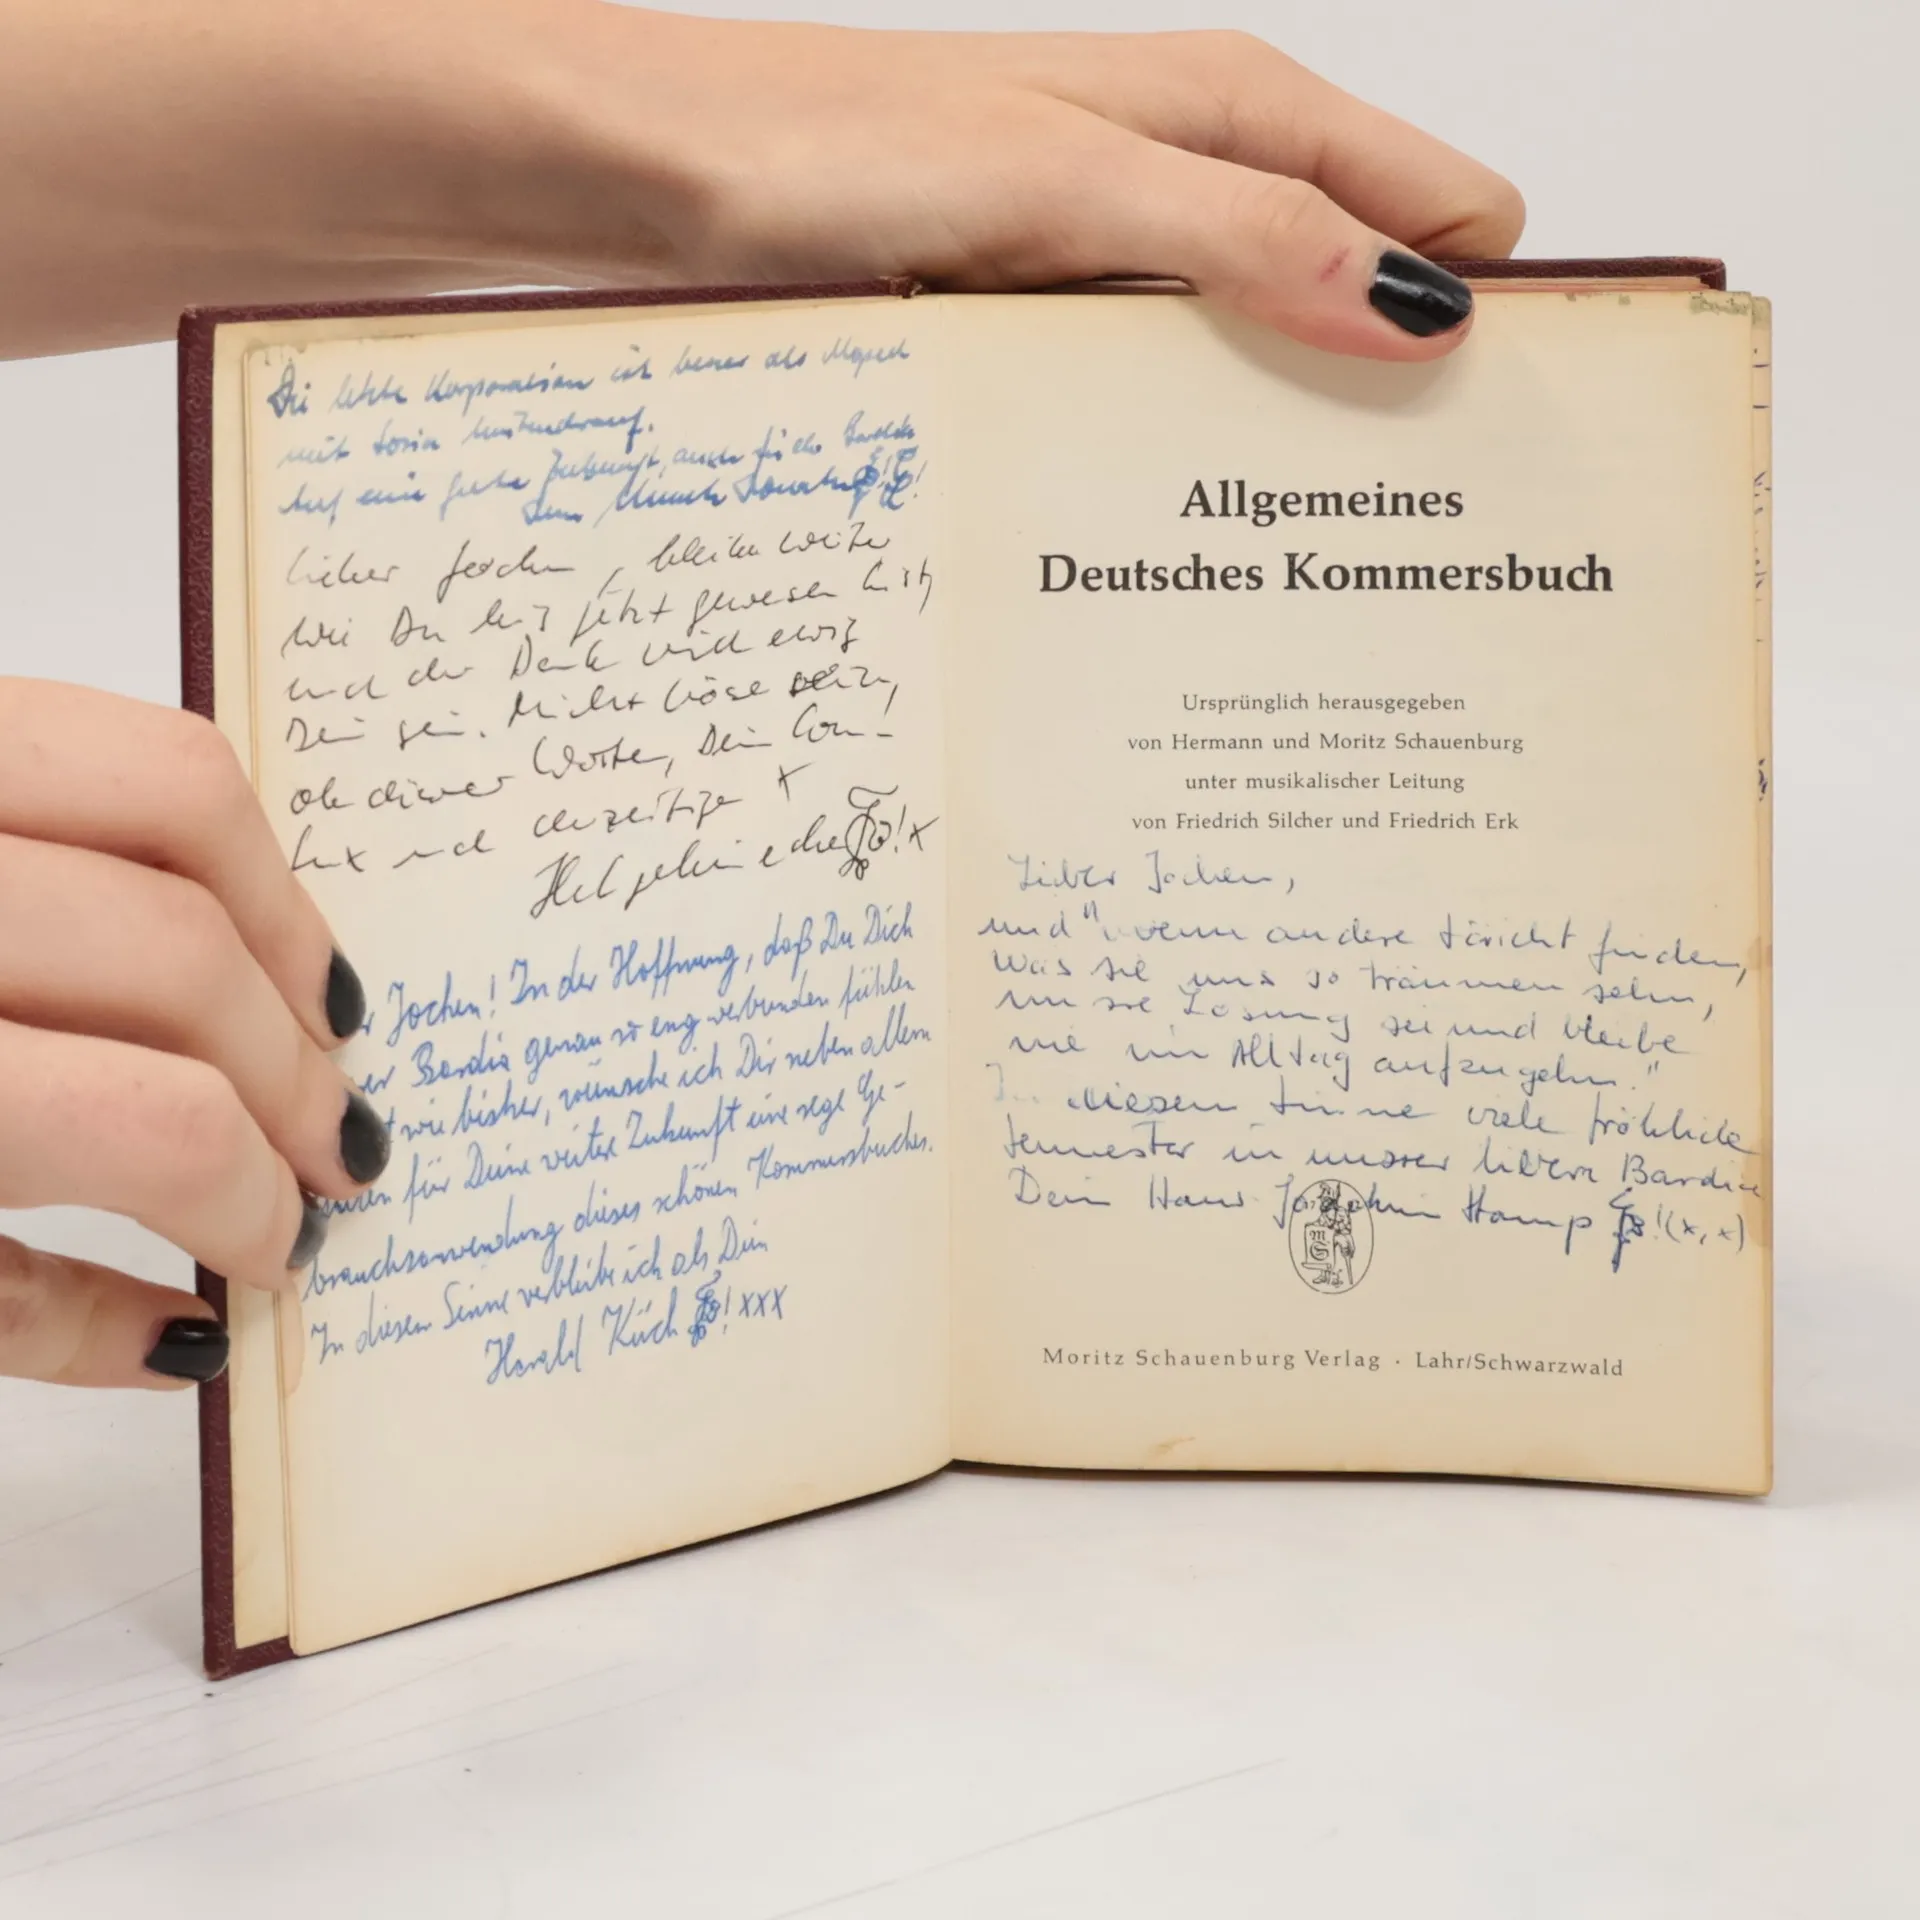 Die letzte Korporation ist besser als Moped
mit
Auf eine gute Zukunft, auch für die Bardia
Dein
Lieber Jochen, bleibe weiter
wie Du bis jetzt gewesen bist,
und der Dank wird ewig
Dein sein. Nicht böse sein,
ob dieser Worte, Dein Con-
fux und derzeitiger x
! x
Jochen! In der Hoffnung, daß Du Dich
Bardia genau so eng verbunden fühlen
wie bisher, wünsche ich Dir neben allem
für Deine weitere Zukunft eine rege Ge-
brauchsanwendung dieses schönen Kommersbuches.
In diesem Sinne verbleibe ich als Dein
Harald Küch ! xxx
Allgemeines
Deutsches Kommersbuch
Ursprünglich herausgegeben
von Hermann und Moritz Schauenburg
unter musikalischer Leitung
von Friedrich Silcher und Friedrich Erk
Lieber Jochen,
und "wenn andere töricht finden,
was sie uns so träumen sehn,
unsre Losung sei und bleibe
nie im Alltag aufzugehn."
In diesem Sinne viele fröhliche
Semester in unserer lieben Bardia
Dein Hans Joachim Hamp ! (x, x)
MS
Moritz Schauenburg Verlag · Lahr/Schwarzwald